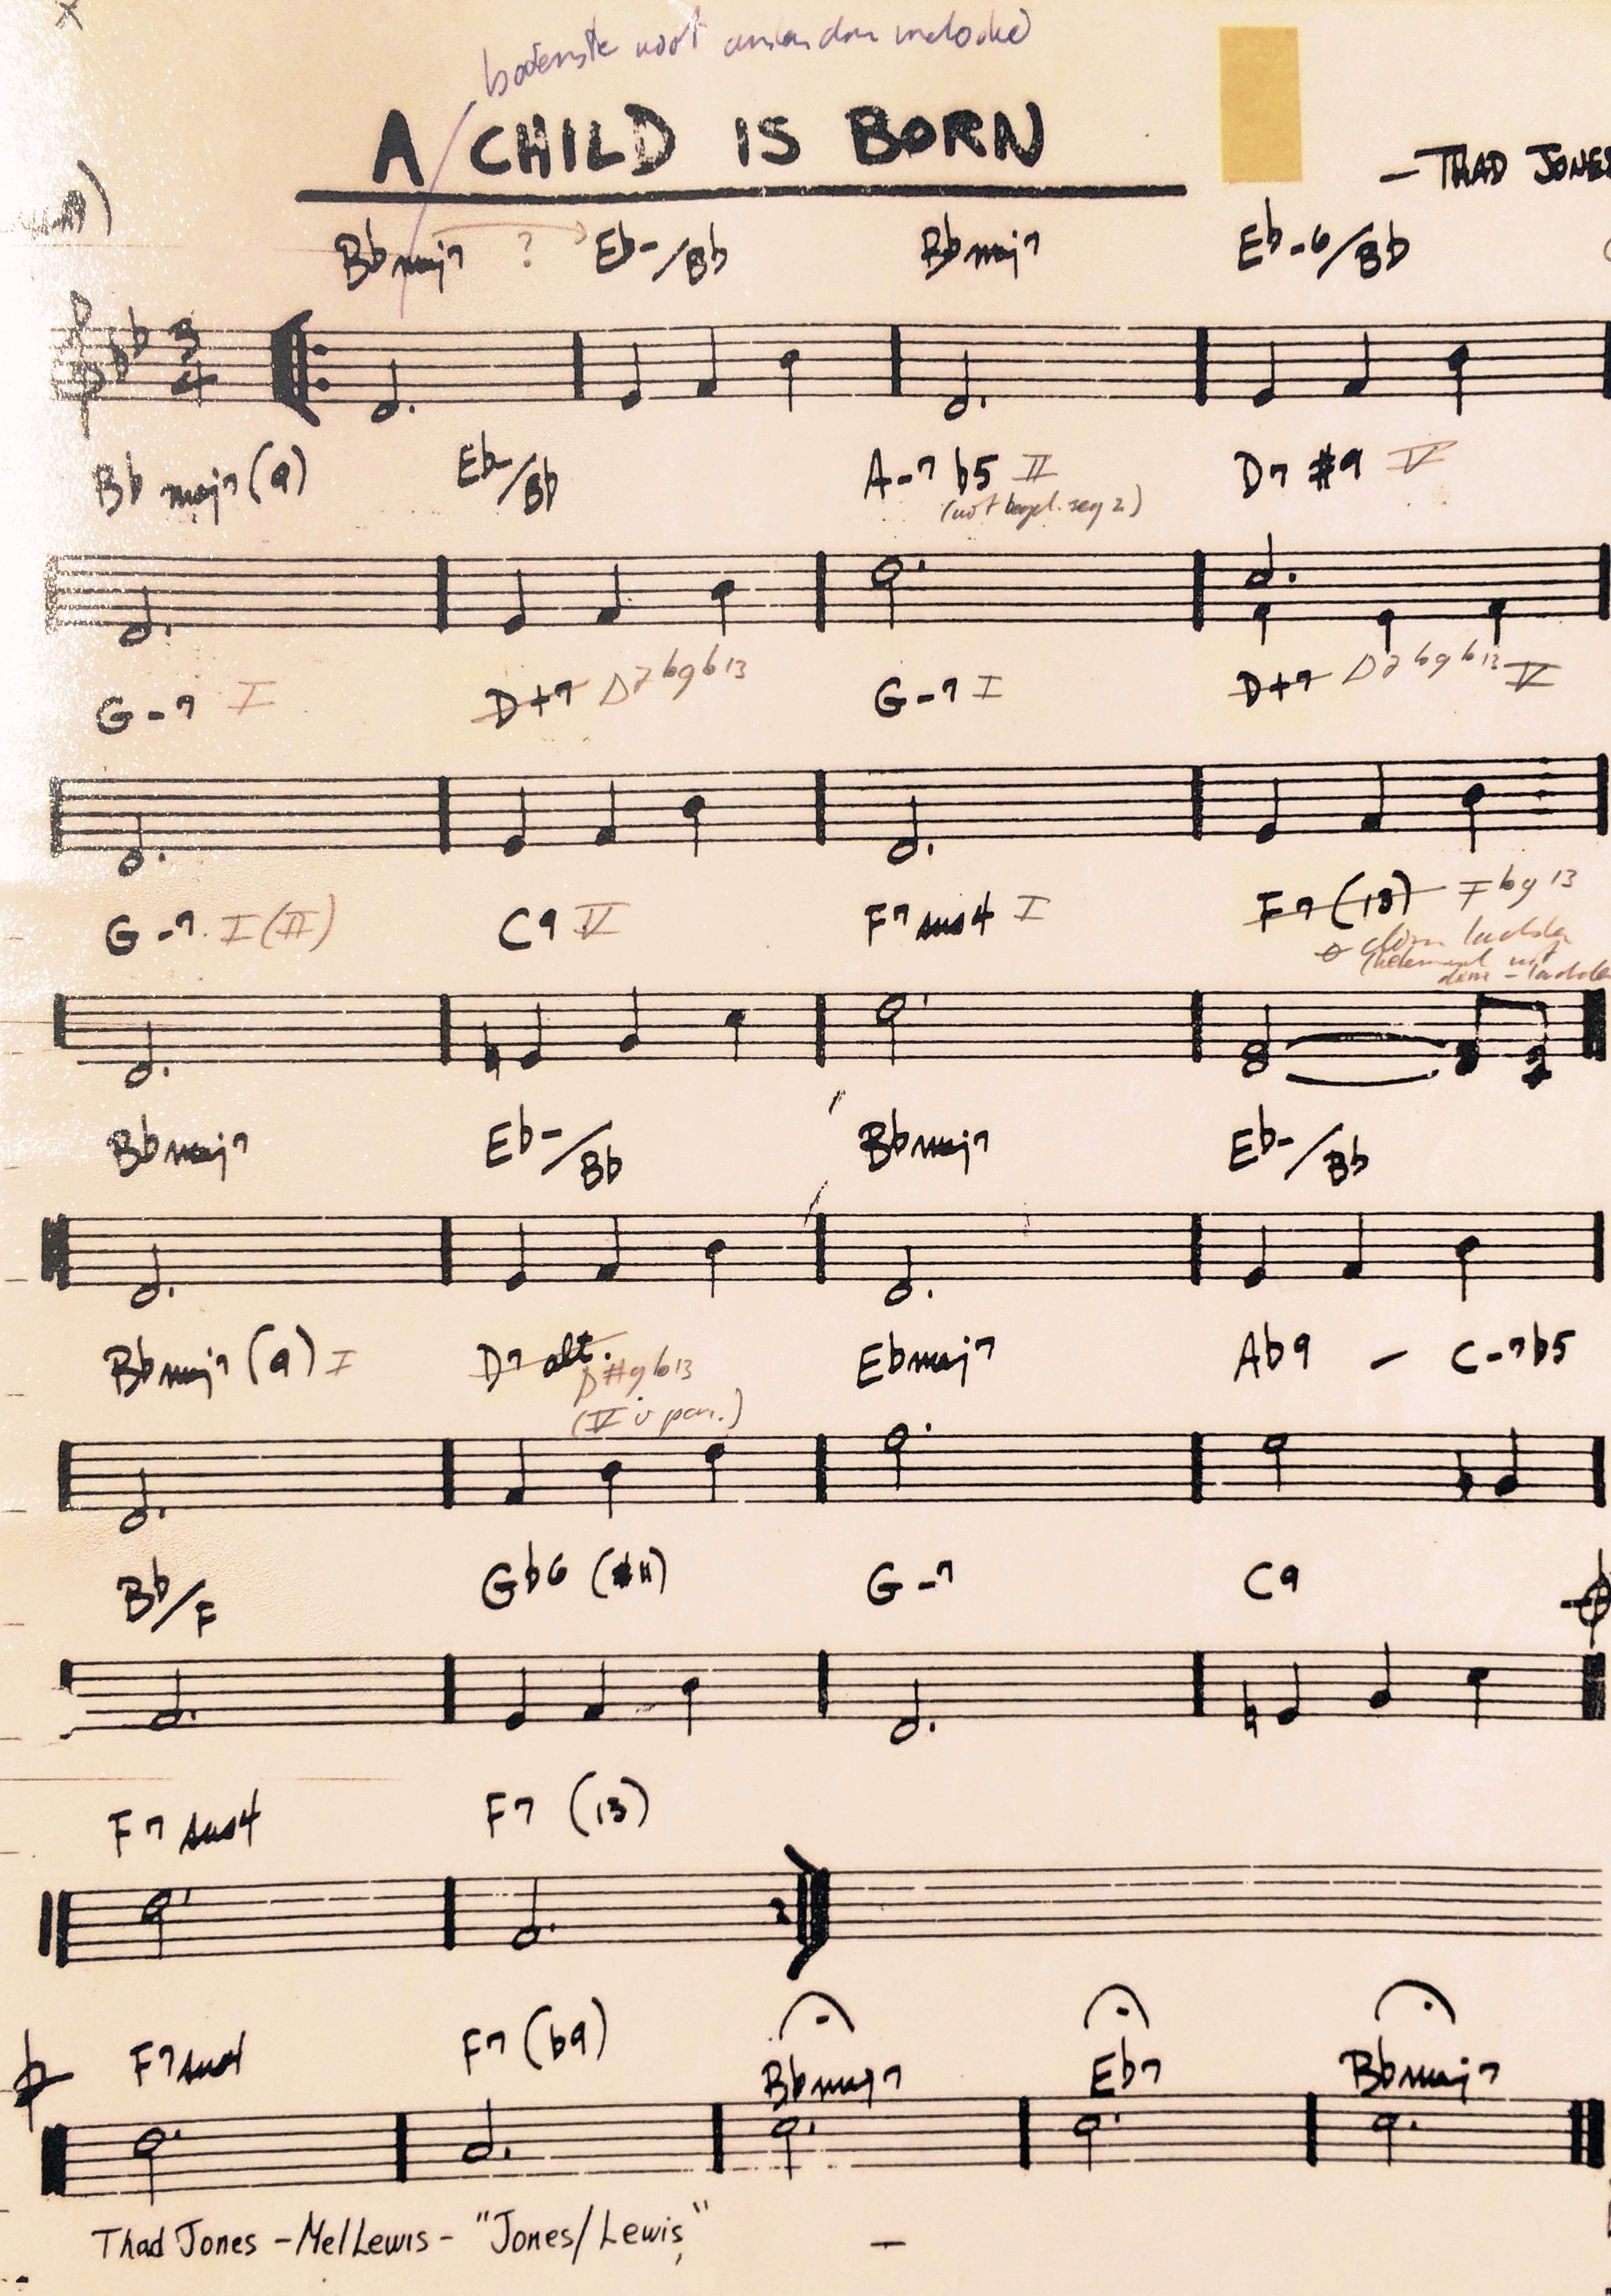 x
bovenste noot
A CHILD IS BORN
— THAD JONES
Bbmaj7 ? Eb-/Bb Bbmaj7 Eb-6/Bb
3/4
Bb maj7 (9) Eb-/Bb A-7 b5 II D7 #9 V
G-7 I D+7 D7 b9 b13 G-7 I D+7 D7 b9 b13 V
G-7 I (II) C9 V F7 sus4 I F7 (13) F b9 13
Bbmaj7 Eb-/Bb Bbmaj7 Eb-/Bb
Bbmaj7 (9) I D7 alt. Ebmaj7 Ab9 — C-7b5
D #9 b13
Bb/F Gb6 (#11) G-7 C9
F7 sus4 F7 (13)
F7sus4 F7 (b9) Bbmaj7 Eb7 Bbmaj7
Thad Jones - Mel Lewis - "Jones/Lewis" —